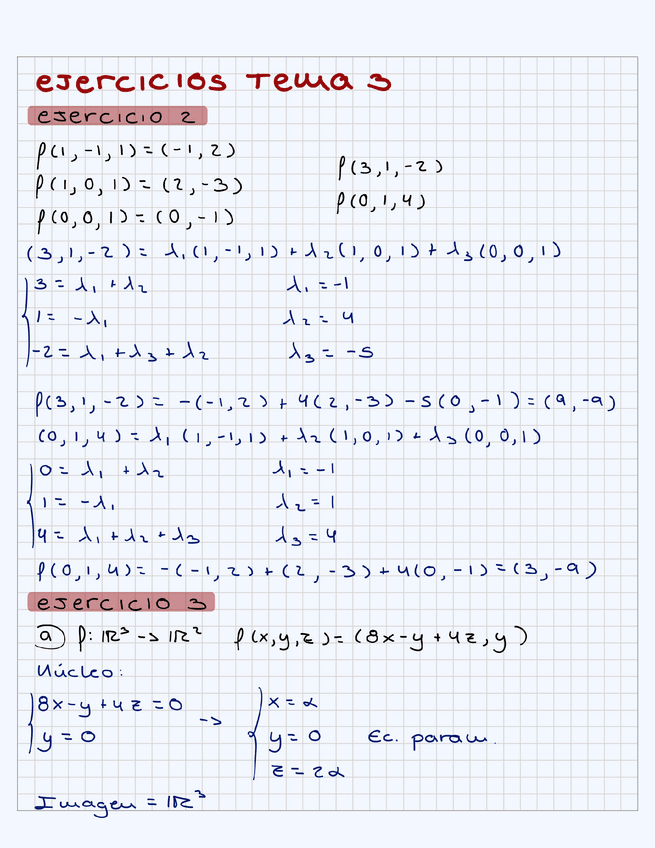 ejercicios Tema 3
ejercicio 2
f(1,-1,1)=(-1,2)
f(3,1,-2)
f(1,0,1)=(2,-3)
f(0,1,4)
f(0,0,1)=(0,-1)
(3,1,-2)= λ₁(1,-1,1)+λ₂(1,0,1)+λ₃(0,0,1)
3= λ₁+λ₂ λ₁=-1
1= -λ₁ λ₂= 4
-2= λ₁+λ₃+λ₂ λ₃= -5
f(3,1,-2)= -(-1,2)+4(2,-3)-5(0,-1)=(9,-9)
(0,1,4)=λ₁(1,-1,1)+λ₂(1,0,1)+λ₃(0,0,1)
0= λ₁+λ₂ λ₁=-1
1= -λ₁ λ₂=1
4= λ₁+λ₂+λ₃ λ₃=4
f(0,1,4)= -(-1,2)+(2,-3)+4(0,-1)=(3,-9)
ejercicio 3
a f: ℝ³ -> ℝ² f(x,y,z)=(8x-y+4z,y)
Núcleo:
8x-y+4z=0 -> x=α
y=0 y=0 Ec. param.
z=2α
Imagen = ℝ³